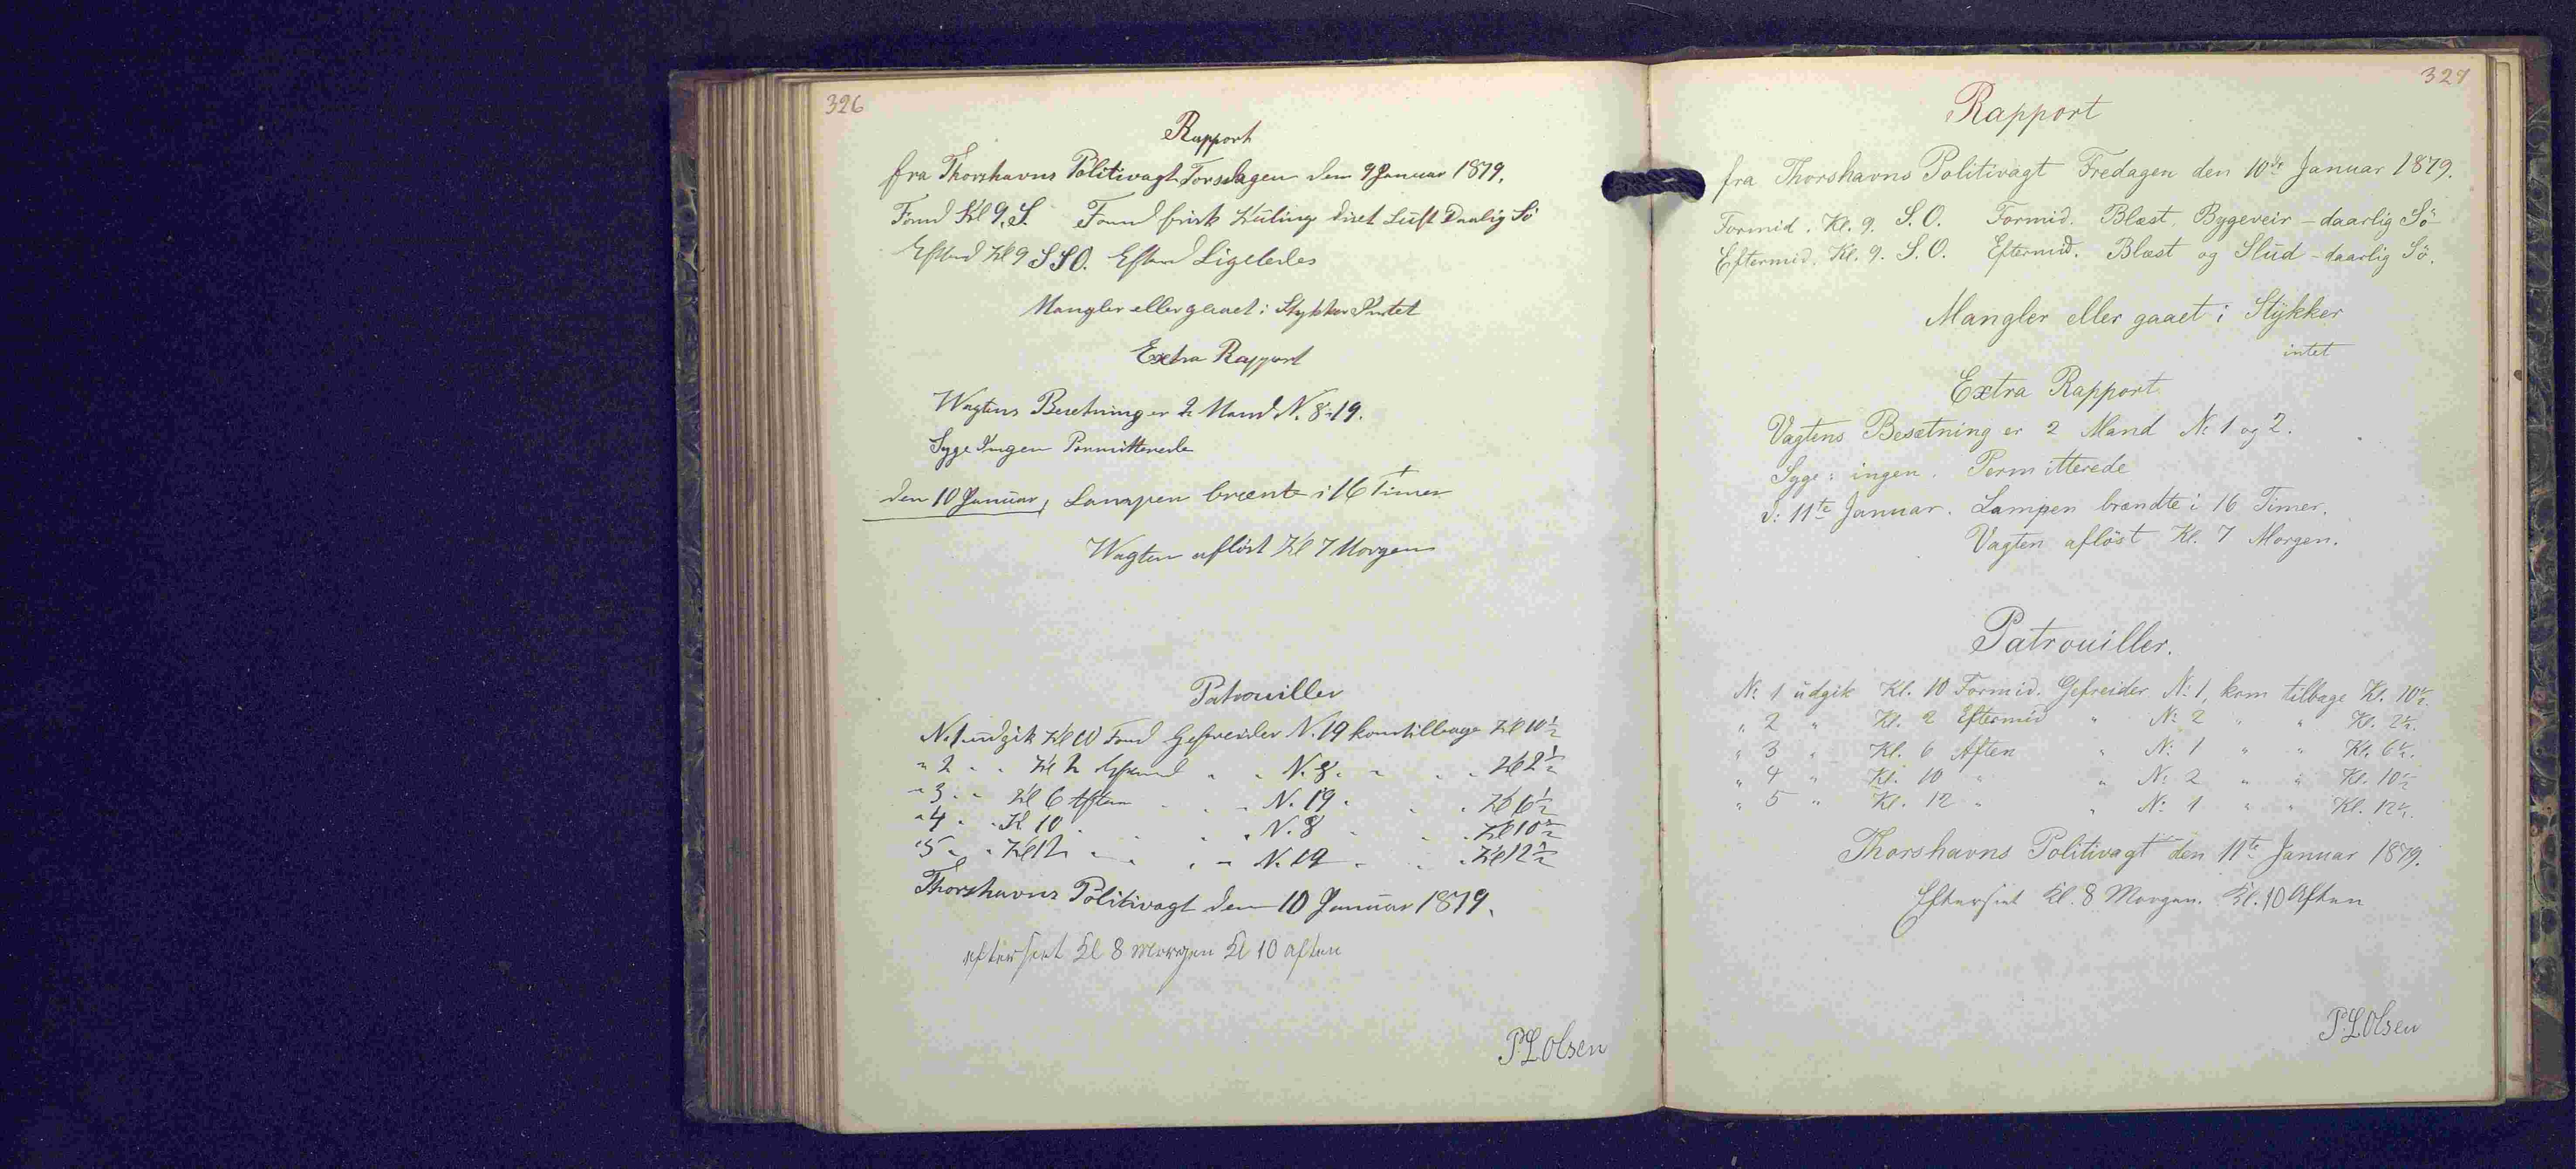 326
Rapport
fra Thorshavns Politivagt Torsdagen den 9 Januar 1879.
Formd Kl 9. S. Formd frisk Kuling diset Luft Daalig Sö
Eftmd Kl 9 SSO. Eftmd Ligeledes
Mangler eller gaaet i Stykker Intet
Extra Rapport
Wagtens Besetning er 2 Mand N. 8-19.
Syge Ingen Permitterede
den 10 Januar, Lampen brænte i 16 Timer
Wagten aflöst Kl 7 Morgen
Patrouiller
N. 1 udgik Kl 10 Formd Gefreider N. 19 kom tilbage Kl 10½
" 2 " " Kl 2 Eftmd " " N. 8 " " " Kl 2½
" 3 " " Kl 6 Aften " " " N. 19 " " " Kl 6½
" 4 " " Kl 10 " " " " N. 8 " " " Kl 10½
" 5 " " Kl 12 " " " " N. 19 " " " Kl 12½
Thorshavns Politivagt den 10 Januar 1879.
efterseet Kl 8 Morgen Kl 10 aften
P.L.Olsen
327
Rapport
fra Thorshavns Politivagt Fredagen den 10de Januar 1879.
Formid. Kl. 9. S.O. Formid. Blæst, Bygeveir - daarlig Sö
Eftermid. Kl. 9. S.O. Eftermid. Blæst og Slud - daarlig Sö.
Mangler eller gaaet i Stykker
intet
Extra Rapport
Vagtens Besætning er 2 Mand No 1 og 2.
Syge: ingen. Permitterede
d: 11te Januar. Lampen brændte i 16 Timer.
Vagten aflöst Kl. 7 Morgen.
Patrouiller.
No 1 udgik Kl. 10 Formid. Gefreider No 1, kom tilbage Kl. 10½.
" 2 " Kl. 2 Eftermid " No 2 " " Kl. 2½.
" 3 " Kl. 6 Aften " No 1 " " Kl. 6½.
" 4 " Kl. 10 " " No 2 " " Kl. 10½
" 5 " Kl. 12 " " No 1 " " Kl. 12½.
Thorshavns Politivagt den 11te Januar 1879.
Efterseet Kl. 8 Morgen. Kl. 10 Aften
P.L.Olsen